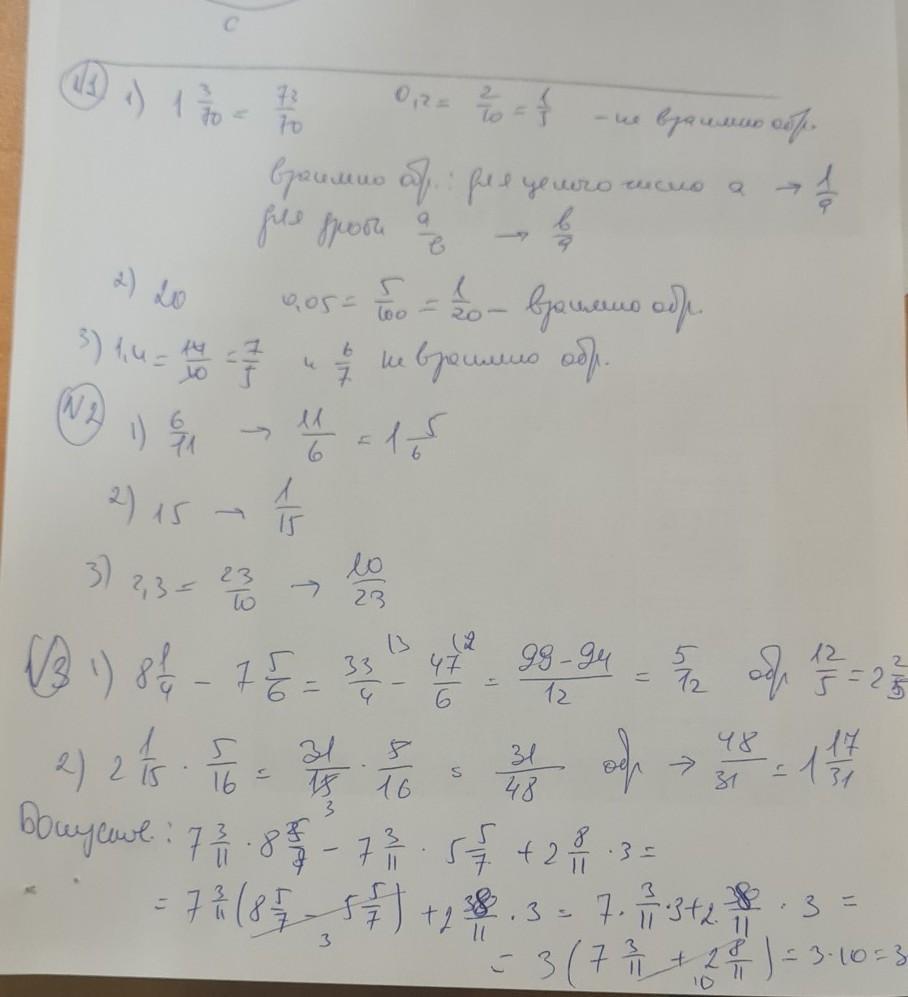 C
N1 1) 1 3/70 = 73/70 0,2 = 2/10 = 1/5 - не взаимно обр.
взаимно обр.: для целого число a → 1/a
для дроби a/b → b/a
2) 20 0,05 = 5/100 = 1/20 - взаимно обр.
3) 1,4 = 14/10 = 7/5 и 6/7 не взаимно обр.
N2 1) 6/11 → 11/6 = 1 5/6
2) 15 → 1/15
3) 2,3 = 23/10 → 10/23
N3 1) 8 1/4 - 7 5/6 = 33/4 (3 - 47/6 (2 = 99-94/12 = 5/12 обр 12/5 = 2 2/5
2) 2 1/15 · 5/16 = 31/15 · 5/16 = 31/48 обр → 48/31 = 1 17/31
3
7 3/11 · 8 5/7 - 7 3/11 · 5 5/7 + 2 8/11 · 3 =
= 7 3/11 (8 5/7 - 5 5/7) + 2 8/11 · 3 = 7 · 3/11 · 3 + 2 8/11 · 3 =
3
= 3 (7 3/11 + 2 8/11) = 3·10 = 3
10